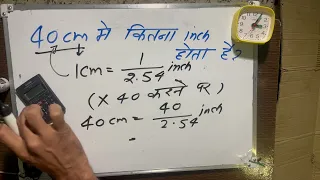 40 cm मे कितना inch
होता है?
1cm = 1/2.54 inch
(× 40 करने पर)
40 cm = 40/2.54 inch
=